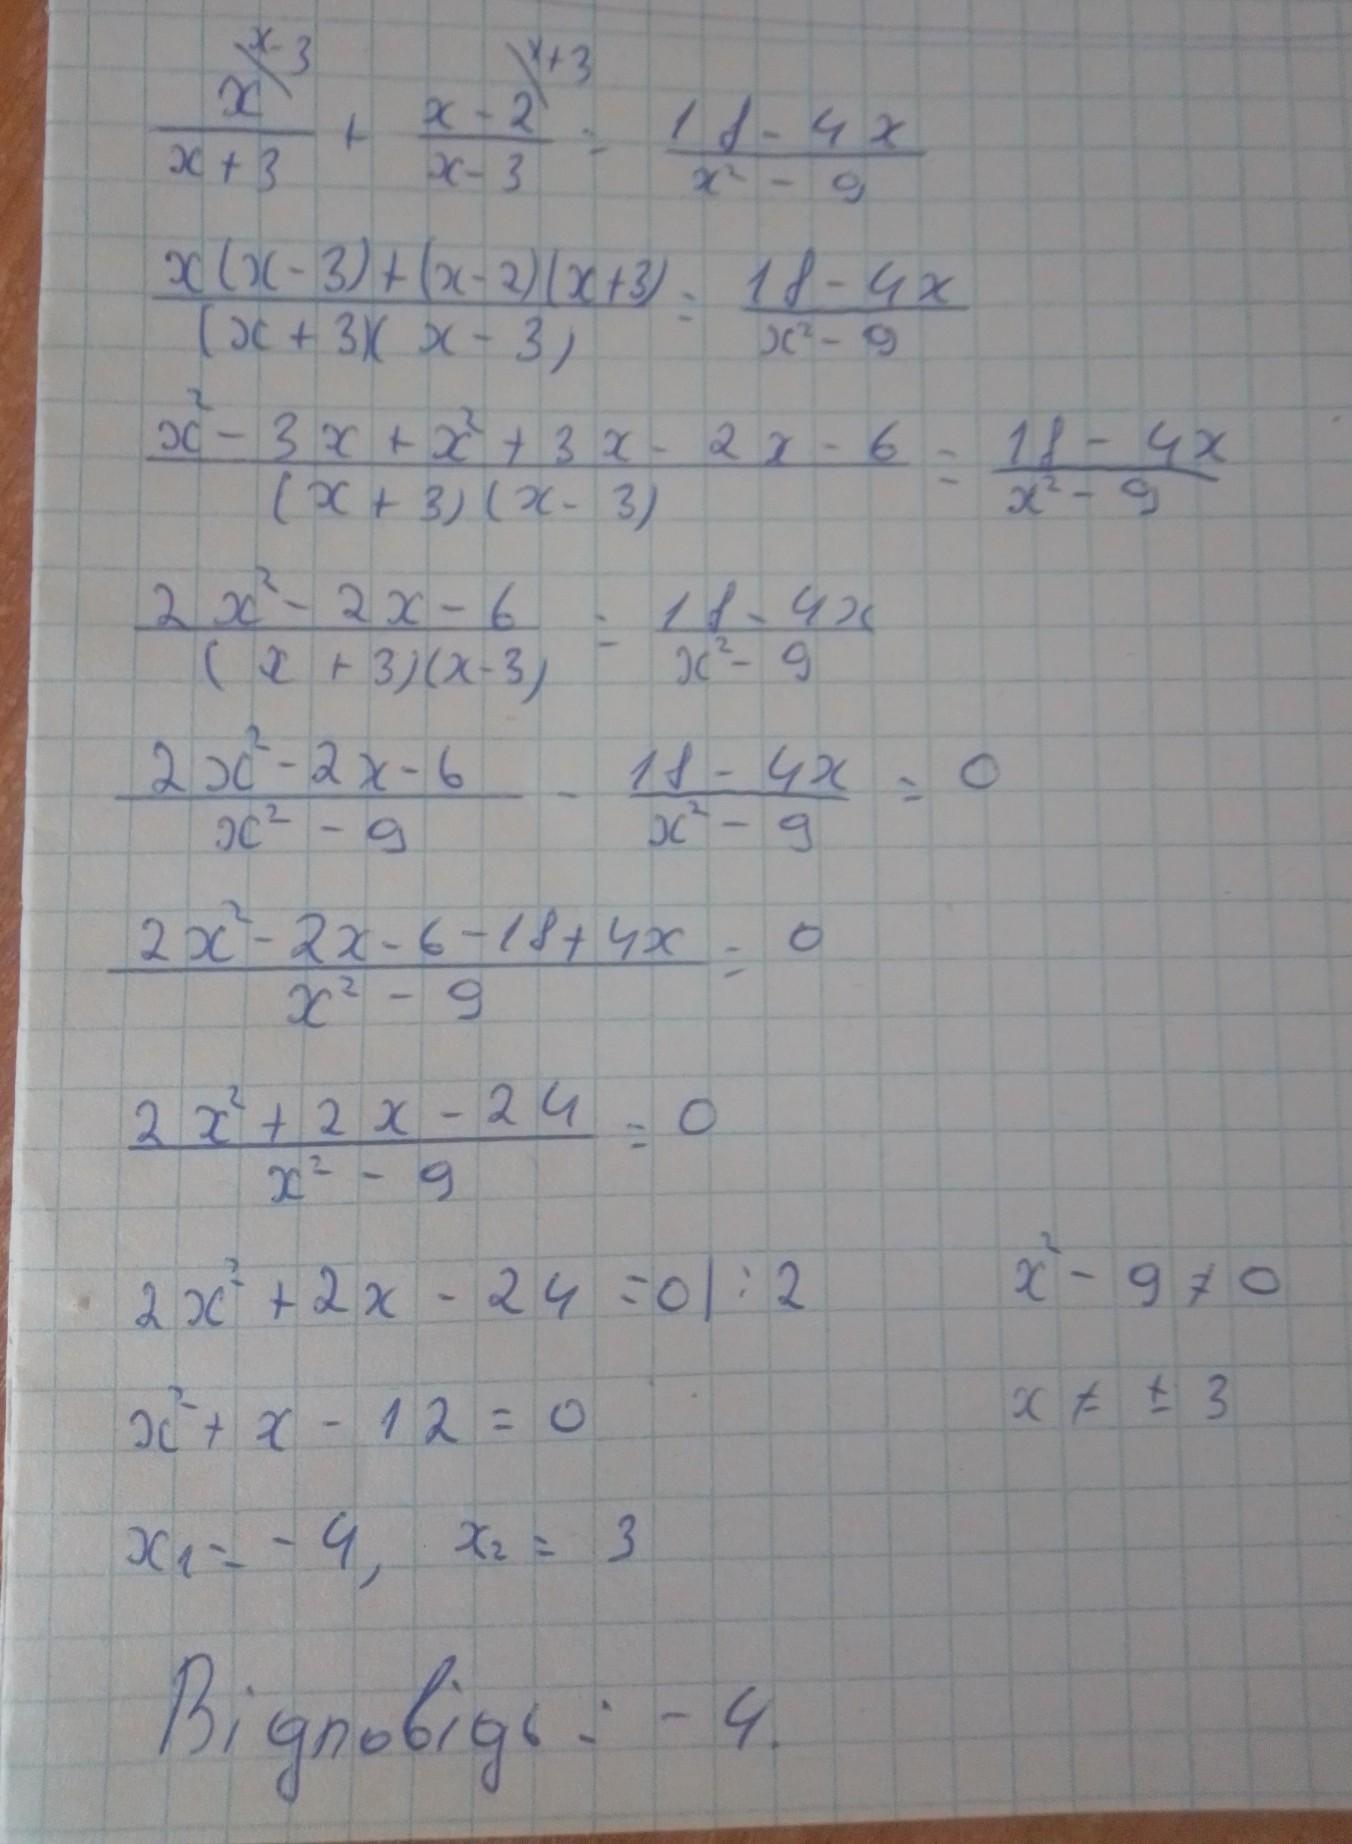 x^{x-3}/(x+3) + (x-2)^{x+3}/(x-3) = (18-4x)/(x²-9)
(x(x-3)+(x-2)(x+3))/((x+3)(x-3)) = (18-4x)/(x²-9)
(x²-3x+x²+3x-2x-6)/((x+3)(x-3)) = (18-4x)/(x²-9)
(2x²-2x-6)/((x+3)(x-3)) = (18-4x)/(x²-9)
(2x²-2x-6)/(x²-9) - (18-4x)/(x²-9) = 0
(2x²-2x-6-18+4x)/(x²-9) = 0
(2x²+2x-24)/(x²-9) = 0
2x²+2x-24=0|:2 x²-9≠0
x²+x-12=0 x≠±3
x₁=-4, x₂=3
Відповідь: -4.